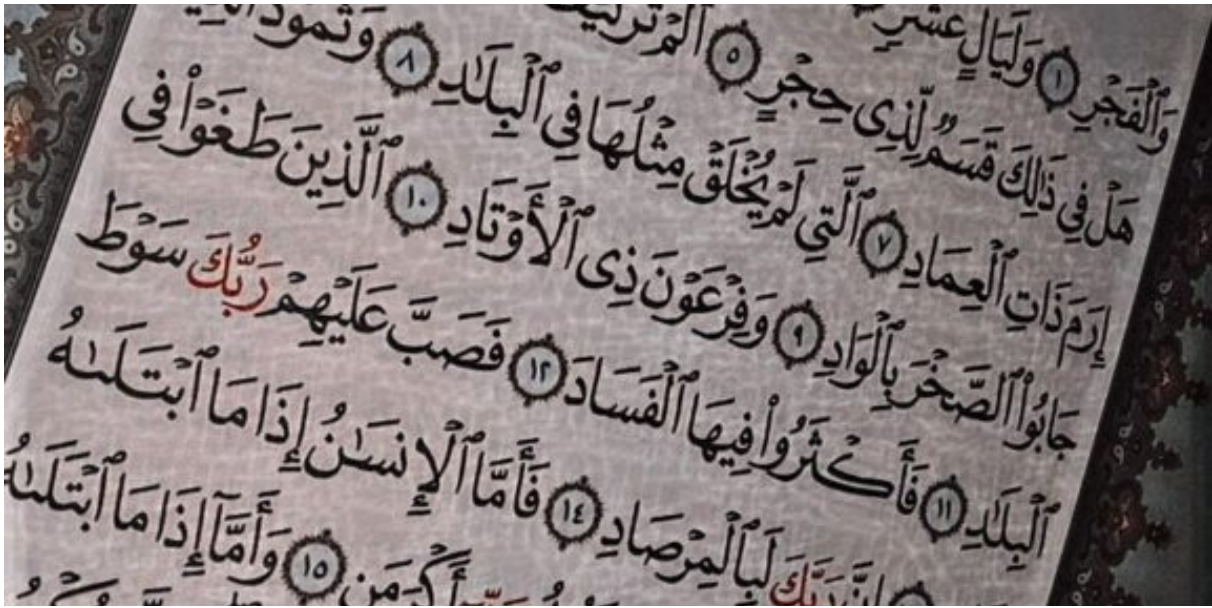 وَٱلْفَجْرِ ١ وَلَيَالٍ عَشْرٍ
هَلْ فِى ذَٰلِكَ قَسَمٌ لِّذِى حِجْرٍ ٥ أَلَمْ تَرَ كَيْفَ
إِرَمَ ذَاتِ ٱلْعِمَادِ ٧ ٱلَّتِى لَمْ يُخْلَقْ مِثْلُهَا فِى ٱلْبِلَٰدِ ٨ وَثَمُودَ
جَابُوا۟ ٱلصَّخْرَ بِٱلْوَادِ ٩ وَفِرْعَوْنَ ذِى ٱلْأَوْتَادِ ١٠ ٱلَّذِينَ طَغَوْا۟ فِى
ٱلْبِلَٰدِ ١١ فَأَكْثَرُوا۟ فِيهَا ٱلْفَسَادَ ١٢ فَصَبَّ عَلَيْهِمْ رَبُّكَ سَوْطَ
إِنَّ رَبَّكَ لَبِٱلْمِرْصَادِ ١٤ فَأَمَّا ٱلْإِنسَٰنُ إِذَا مَا ٱبْتَلَىٰهُ
أَكْرَمَنِ ١٥ وَأَمَّآ إِذَا مَا ٱبْتَلَىٰهُ